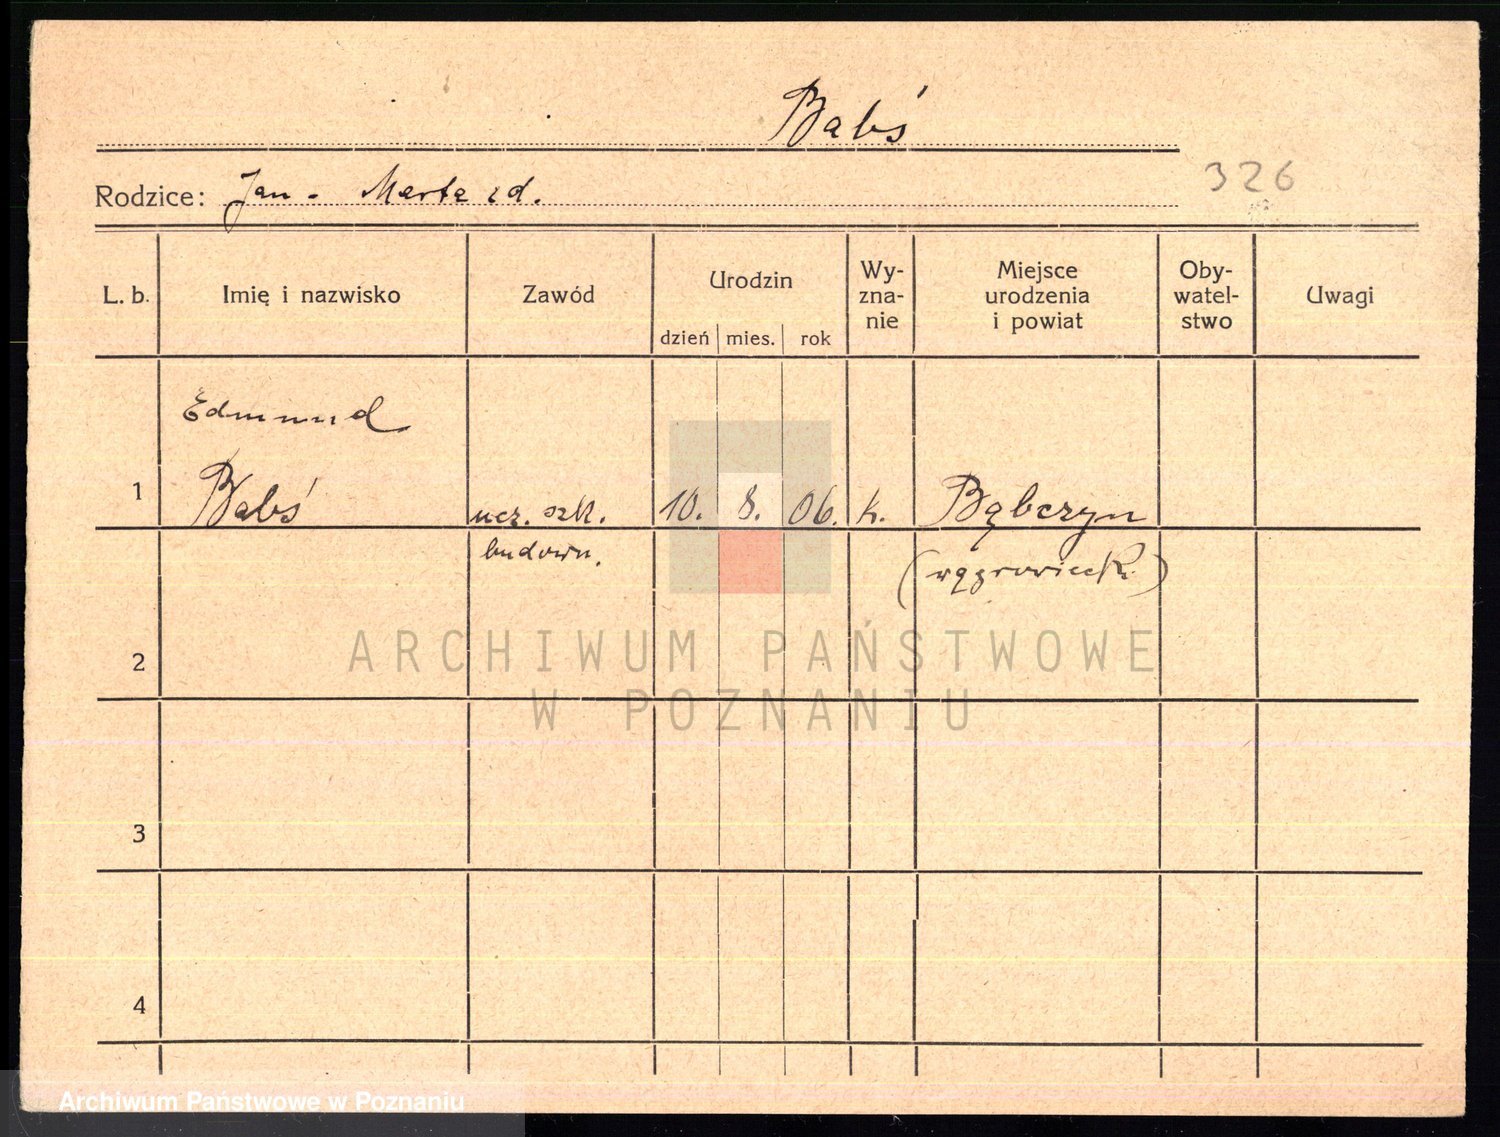 Babś
Rodzice: Jan - Marta zd.
326
L. b.
Imię i nazwisko
Zawód
Urodzin
dzień mies. rok
Wy-
zna-
nie
Miejsce
urodzenia
i powiat
Oby-
watel-
stwo
Uwagi
Edmund
1 Babś ucz. szk. 10. 8. 06. k. Bąbczyn
budown.
(wągrowieck.)
2
ARCHIWUM PAŃSTWOWE
W POZNANIU
3
4
Archiwum Państwowe w Poznaniu